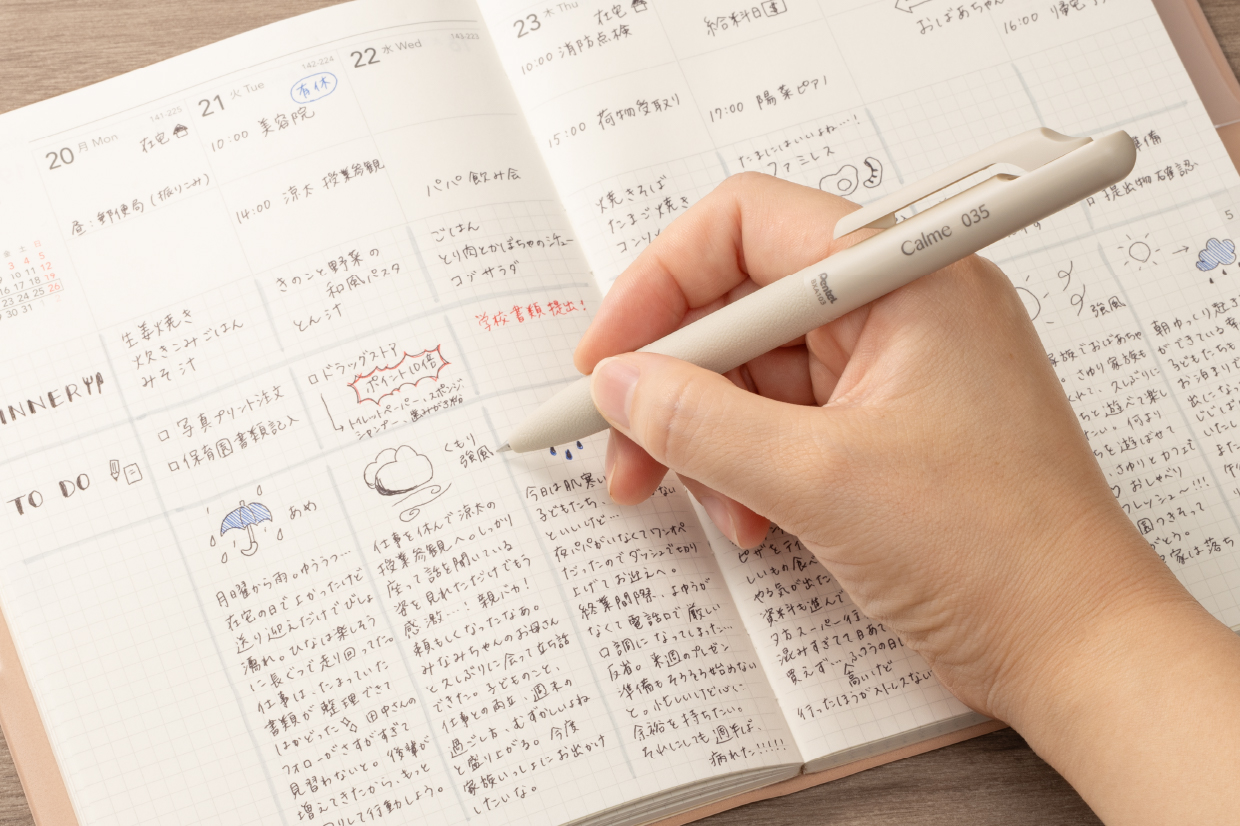 20 月 Mon
141-225
在宅
昼:郵便局(振りこみ)
生姜焼き
炊きこみごはん
みそ汁
□写真プリント注文
□保育園書類記入
あめ
月曜から雨。ゆううつ…
在宅の日でよかったけど
送り迎えだけでびしょ
濡れ。ひなは楽しそう
に長ぐつで走り回ってた。
仕事は、たまっていた
書類が整理できて
はかどった 田中さんの
フォローがさすがすぎて
見習わないと。後輩が
増えてきたから、もっと
して行動しよう。
21 火 Tue
142-224
有休
10:00 美容院
14:00 涼太 授業参観
きのこと野菜の
和風パスタ
とん汁
□ドラッグストア
ポイント10倍
トイレットペーパー・スポンジ
シャンプー・歯みがき粉
くもり
強風
仕事を休んで涼太の
授業参観へ。しっかり
座って話を聞いている
姿を見れただけでもう
感激…!親バカ!
頼もしくなったなあ。
みなみちゃんのお母さん
と久しぶりに会って立ち話
できた。子どものこと、
仕事との両立、週末の
過ごし方、むずかしいよね
と盛り上がる。今度
家族いっしょにお出かけ
したいな。
22 水 Wed
143-223
パパ飲み会
ごはん
とり肉とかぼちゃのシチュー
コブサラダ
学校書類提出!
今日は肌寒い
子どもたち、
ない
といいけど…
夜パパがいなくてワンオペ
だったのでダッシュで切り
上げてお迎えへ。
終業間際、よゆうが
なくて電話口で厳しい
口調になってしまった…
反省。来週のプレゼン
準備もそろそろ始めない
と。忙しいけど心に
余裕を持ちたい。
それにしても週半ば、
疲れた!!!!!
23 木 Thu
在宅
10:00 消防点検
15:00 荷物受取り
焼きそば
たまご焼き
ピザを
しいもの食べ
やる気が出た
資料も進んで
夕方スーパー行
混みすぎてて目あて
買えず…ふつうの日
高いけど
行ったほうがストレスない
給料日
17:00 陽菜ピアノ
たまにはいいよね…!
ファミレス
おばあちゃん
16:00
準備
□提出物確認
強風
家族でおばあちゃ
さゆり家族も
くれて、久しぶりに
遊べて楽し
何より
を遊ばせて
さゆりとカフェで
おしゃべり
フレッシュ〜!!!
5
朝ゆっくり
ができている
子どもたちも
お泊まりで
じじばば
いたし
DINNER
TO DO
Calme 035
Pentel